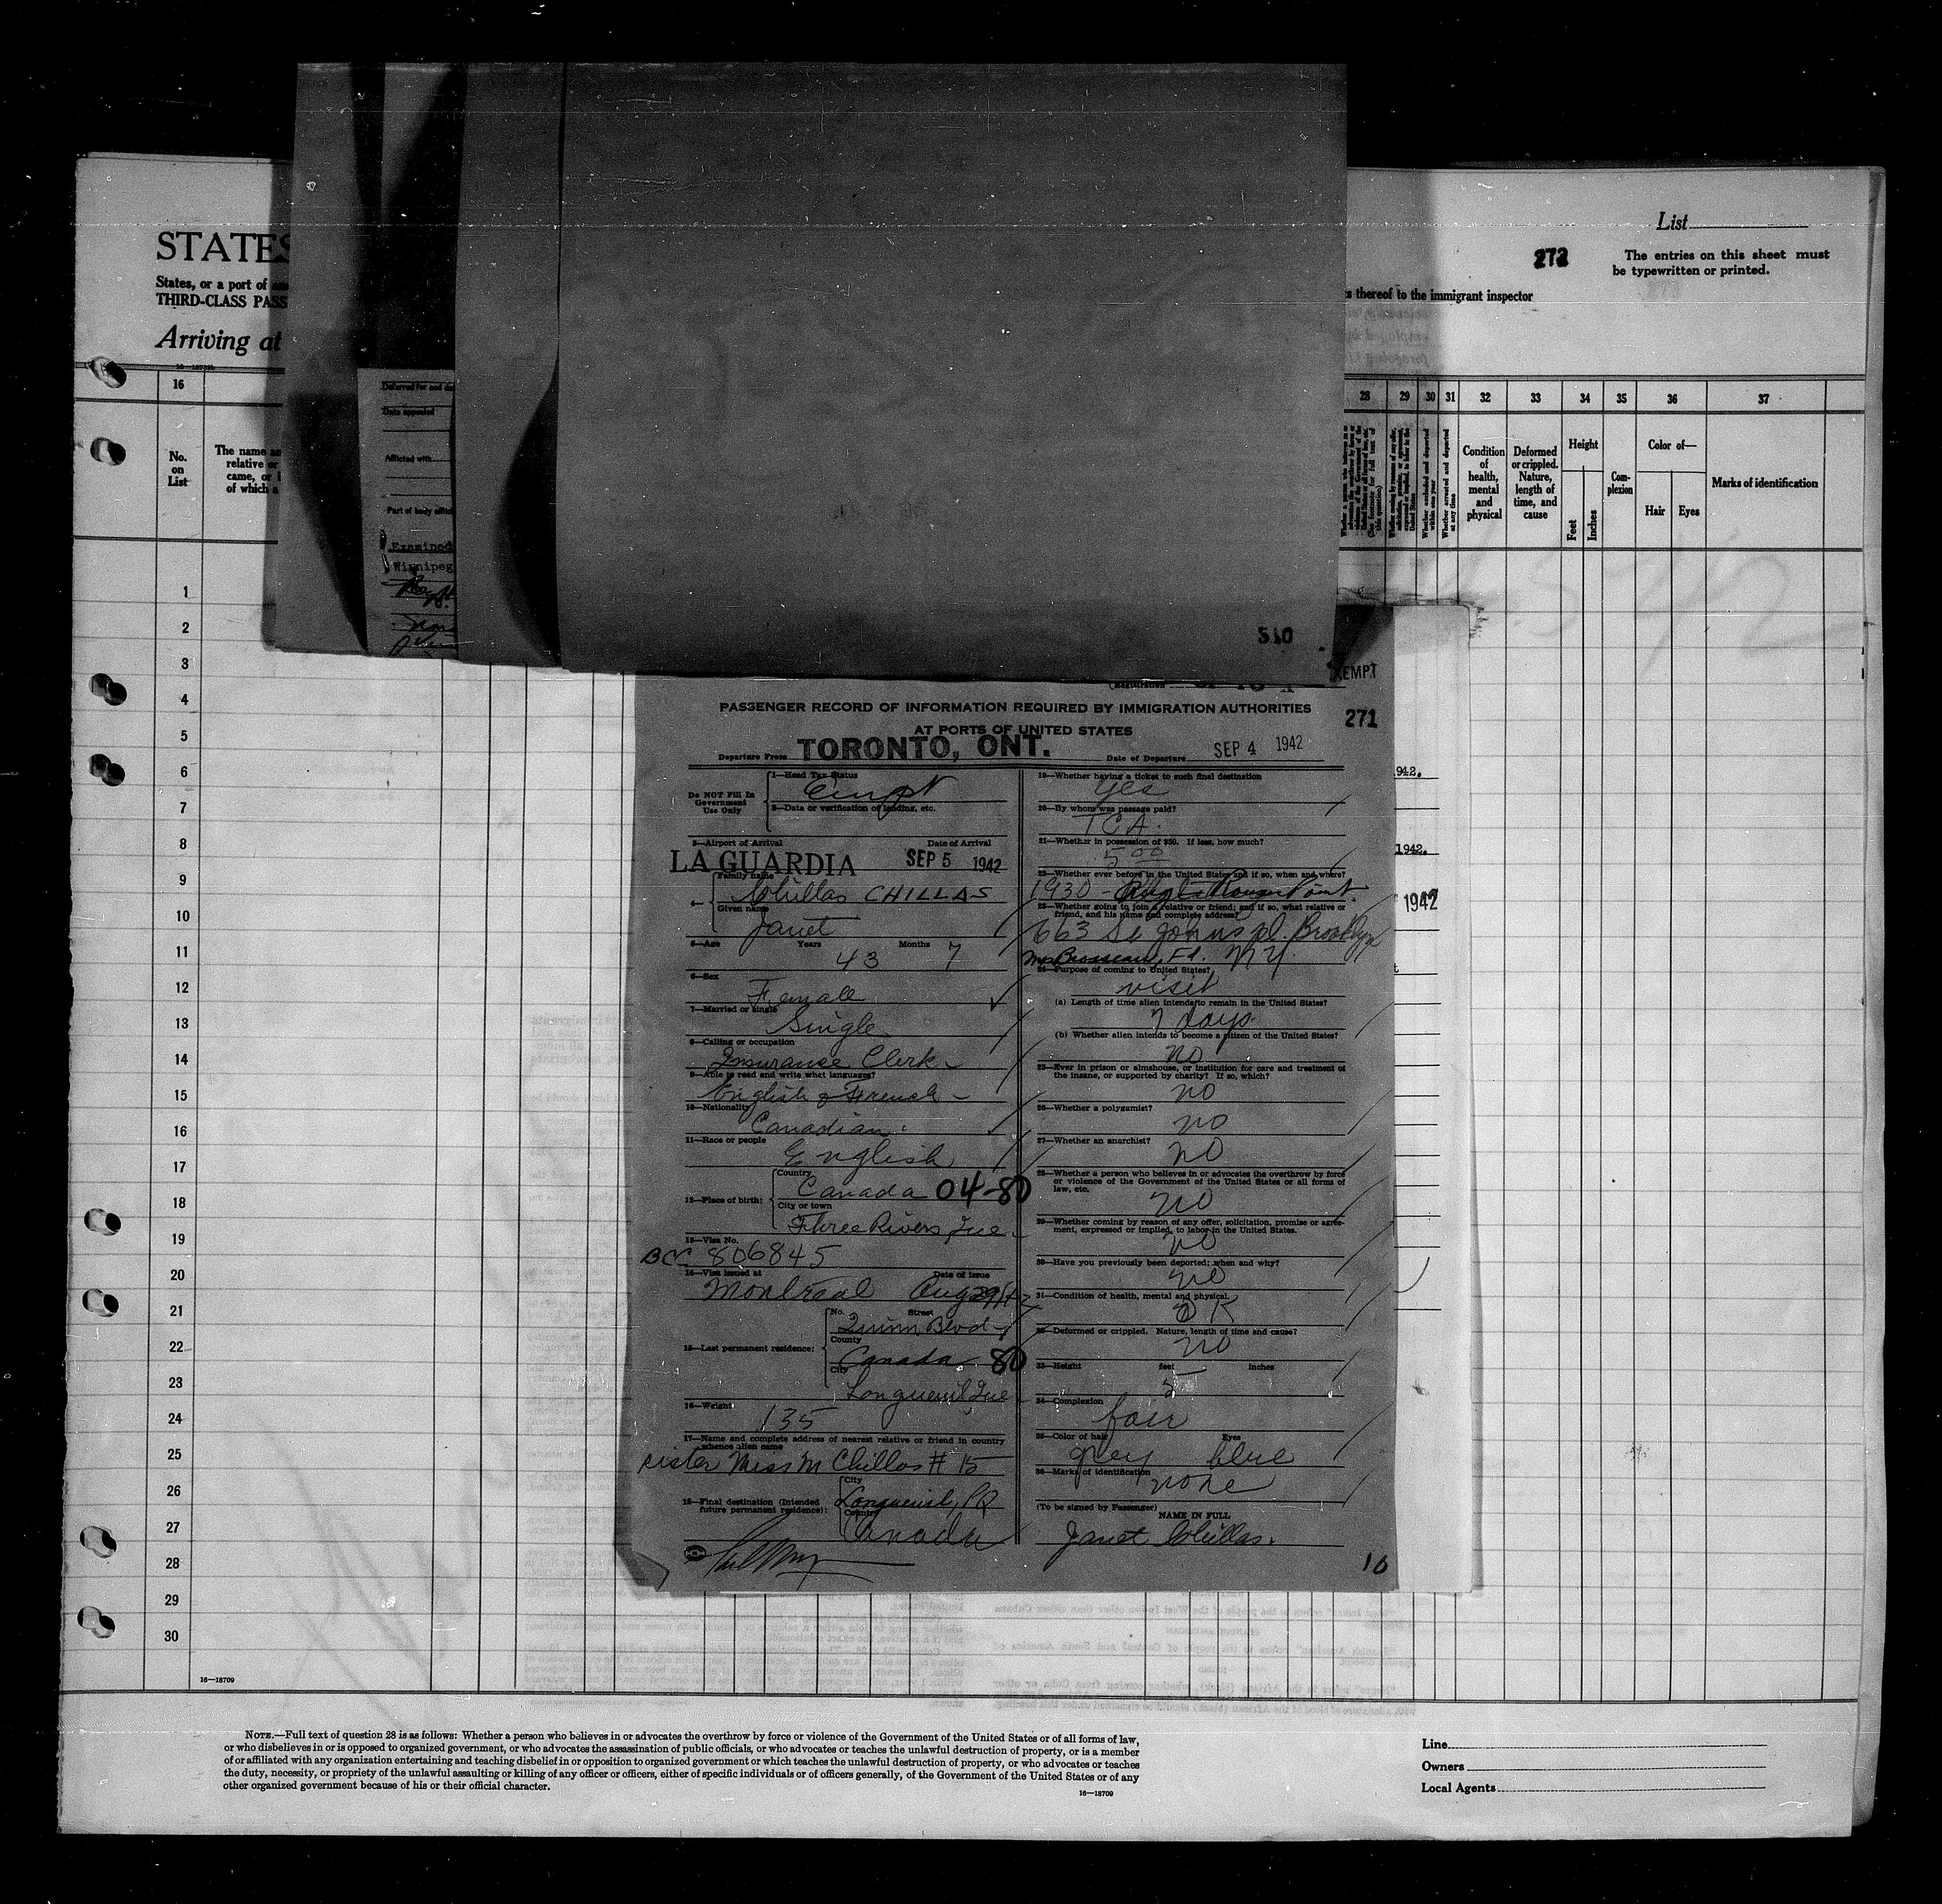 STATES
States, or a port of
THIRD-CLASS PASS
Arriving at
List
272
The entries on this sheet must
be typewritten or printed.
s thereof to the immigrant inspector
16
No.
on
List
The name
relative or
came, or
of which a
Deferred for and
Date appealed
Afflicted with
Part of body
Examined
Winnipeg
28 29 30 31 32 33 34 35 36 37
Whether excluded and deported
within one year
Whether arrested and deported
at any time
Condition
of
health,
mental
and
physical
Deformed
or crippled.
Nature,
length of
time, and
cause
Height
Feet
Inches
Com-
plexion
Color of—
Hair
Eyes
Marks of identification
510
EMPT
271
PASSENGER RECORD OF INFORMATION REQUIRED BY IMMIGRATION AUTHORITIES
AT PORTS OF UNITED STATES
Departure From TORONTO, ONT. Date of Departure SEP 4 1942
Do NOT Fill In
Government
Use Only
1—Head Tax Status
2—Data or verification of landing, etc.
3—Airport of Arrival Date of Arrival
LA GUARDIA SEP 5 1942
4—
Family name
Chillas CHILLAS
Given name
Janet
5—Age Years Months
43 7
6—Sex
Female
7—Married or single
Single
8—Calling or occupation
Insurance Clerk
9—Able to read and write what languages?
English & French
10—Nationality
Canadian
11—Race or people
English
12—Place of birth:
Country
Canada 04-80
City or town
Three Rivers, Que
13—Visa No.
BCC 806845
14—Visa issued at Date of issue
Montreal Aug 29/42
15—Last permanent residence:
No. Street
Quinn Blvd
County
Canada 80
City
Longueuil Que
16—Weight
135
17—Name and complete address of nearest relative or friend in country
whence alien came
sister Miss M Chillas # 15
18—Final destination (Intended
future permanent residence):
City
Longueuil, PQ
Country
Canada
19—Whether having a ticket to such final destination
Yes
20—By whom was passage paid?
TCA.
21—Whether in possession of $50. If less, how much?
5 00
22—Whether ever before in the United States and if so, when and where?
1930 - Rouses Point
23—Whether going to join a relative or friend; and if so, what relative or
friend, and his name and complete address?
663 St Johns pl. Brooklyn
Mrs Brosseau, Fd. N.Y.
24—Purpose of coming to United States?
visit
(a) Length of time alien intends to remain in the United States?
7 days
(b) Whether alien intends to become a citizen of the United States?
no
25—Ever in prison or almshouse, or institution for care and treatment of
the insane, or supported by charity? If so, which?
no
26—Whether a polygamist?
no
27—Whether an anarchist?
no
28—Whether a person who believes in or advocates the overthrow by force
or violence of the Government of the United States or all forms of
law, etc.
no
29—Whether coming by reason of any offer, solicitation, promise or agree-
ment, expressed or implied, to labor in the United States.
no
30—Have you previously been deported; when and why?
no
31—Condition of health, mental and physical.
OK
32—Deformed or crippled. Nature, length of time and cause?
no
33—Height feet inches
5
34—Complexion
fair
35—Color of hair Eyes
grey blue
36—Marks of identification
none
(To be signed by Passenger)
NAME IN FULL
Janet Chillas.
16
1942.
1942.
1942
1
2
3
4
5
6
7
8
9
10
11
12
13
14
15
16
17
18
19
20
21
22
23
24
25
26
27
28
29
30
16—18709
NOTE.—Full text of question 28 is as follows: Whether a person who believes in or advocates the overthrow by force or violence of the Government of the United States or of all forms of law,
or who disbelieves in or is opposed to organized government, or who advocates the assassination of public officials, or who advocates or teaches the unlawful destruction of property, or is a member
of or affiliated with any organization entertaining and teaching disbelief in or opposition to organized government or which teaches the unlawful destruction of property, or who advocates or teaches
the duty, necessity, or propriety of the unlawful assaulting or killing of any officer or officers, either of specific individuals or of officers generally, of the Government of the United States or of any
other organized government because of his or their official character.
16—18709
Line
Owners
Local Agents